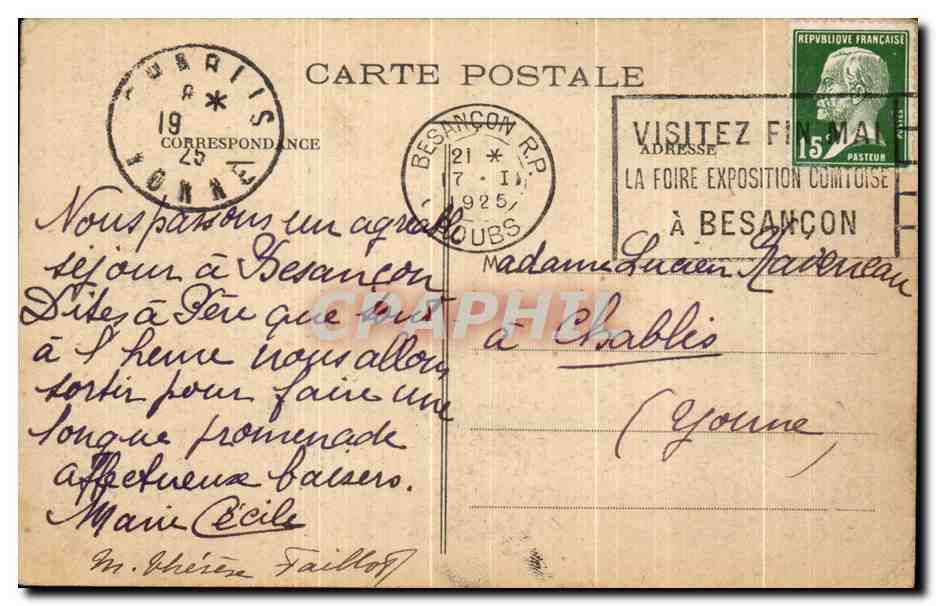 CARTE POSTALE
CORRESPONDANCE
ADRESSE
CHABLIS
8 *
19
25
YONNE
BESANÇON R.P.
21 *
17 · II
1925
DOUBS
VISITEZ FIN MAI
LA FOIRE EXPOSITION COMTOISE
À BESANÇON
REPVBLIQUE FRANÇAISE
POSTES
15c
PASTEUR
Nous passons un agréable
séjour à Besançon
Dites à Père que tout
à l'heure nous allons
sortir pour faire une
longue promenade
affectueux baisers.
Marie Cécile
M. Thérèse Taillot
Madame Lucien Raveneau
à Chablis
(Yonne)
CPAPHIL